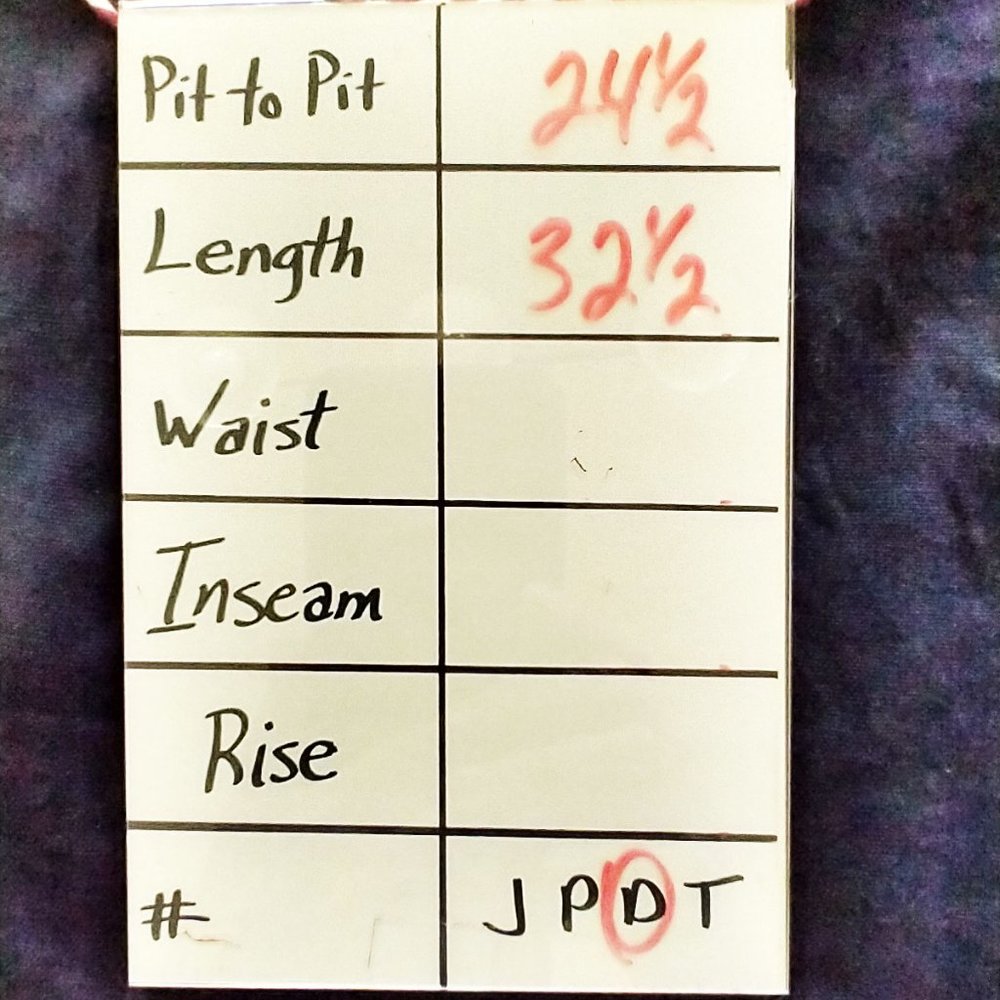 Pit to Pit 24 1/2
Length 32 1/2
Waist
Inseam
Rise
# J P D T